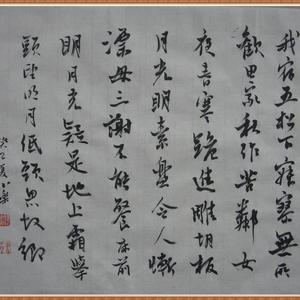 我宿五松下寂寥無所
歡田家秋作苦鄰女
夜舂寒跪進雕胡飯
月光明素盤令人慚
漂母三謝不能餐床前
明月光疑是地上霜舉
頭望明月低頭思故鄉
癸巳夏